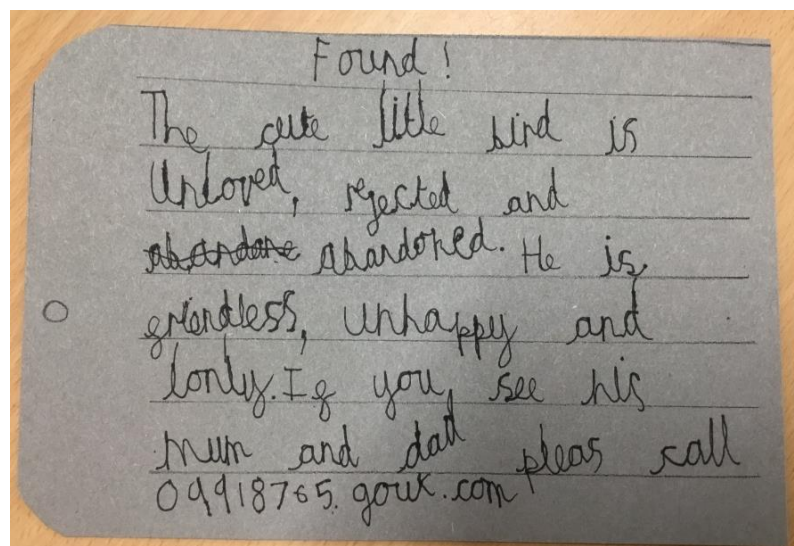 Found!
The cute little bird is
Unloved, rejected and
abandone abandoned. He is
friendless, unhappy and
lonly. If you see his
mum and dad pleas call
09918765.gouk.com